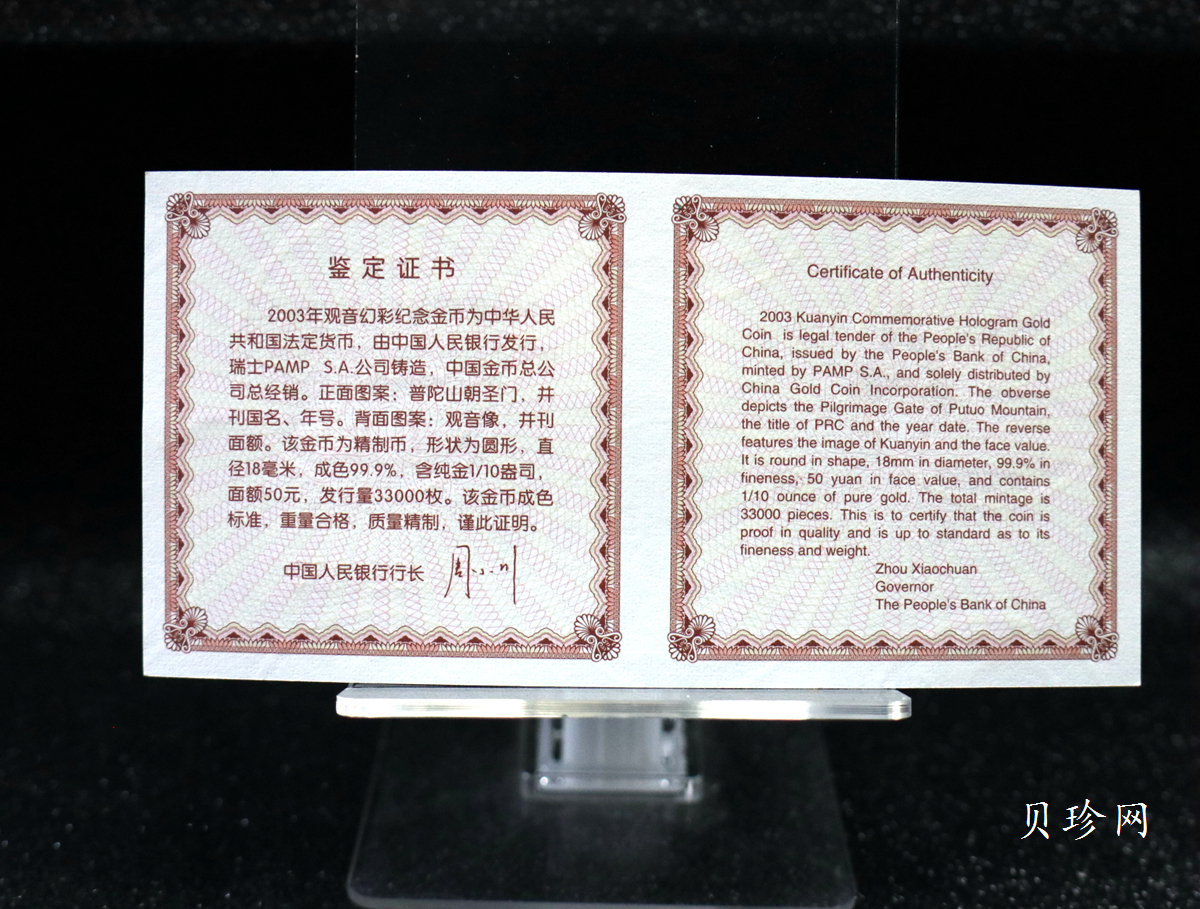 鉴定证书
2003年观音幻彩纪念金币为中华人民
共和国法定货币，由中国人民银行发行，
瑞士PAMP S.A.公司铸造，中国金币总公
司总经销。正面图案：普陀山朝圣门，并
刊国名、年号。背面图案：观音像，并刊
面额。该金币为精制币，形状为圆形，直
径18毫米，成色99.9%，含纯金1/10盎司，
面额50元，发行量33000枚。该金币成色
标准，重量合格，质量精制，谨此证明。
中国人民银行行长 周小川
Certificate of Authenticity
2003 Kuanyin Commemorative Hologram Gold
Coin is legal tender of the People's Republic of
China, issued by the People's Bank of China,
minted by PAMP S.A., and solely distributed by
China Gold Coin Incorporation. The obverse
depicts the Pilgrimage Gate of Putuo Mountain,
the title of PRC and the year date. The reverse
features the image of Kuanyin and the face value.
It is round in shape, 18mm in diameter, 99.9% in
fineness, 50 yuan in face value, and contains
1/10 ounce of pure gold. The total mintage is
33000 pieces. This is to certify that the coin is
proof in quality and is up to standard as to its
fineness and weight.
Zhou Xiaochuan
Governor
The People's Bank of China
贝珍网